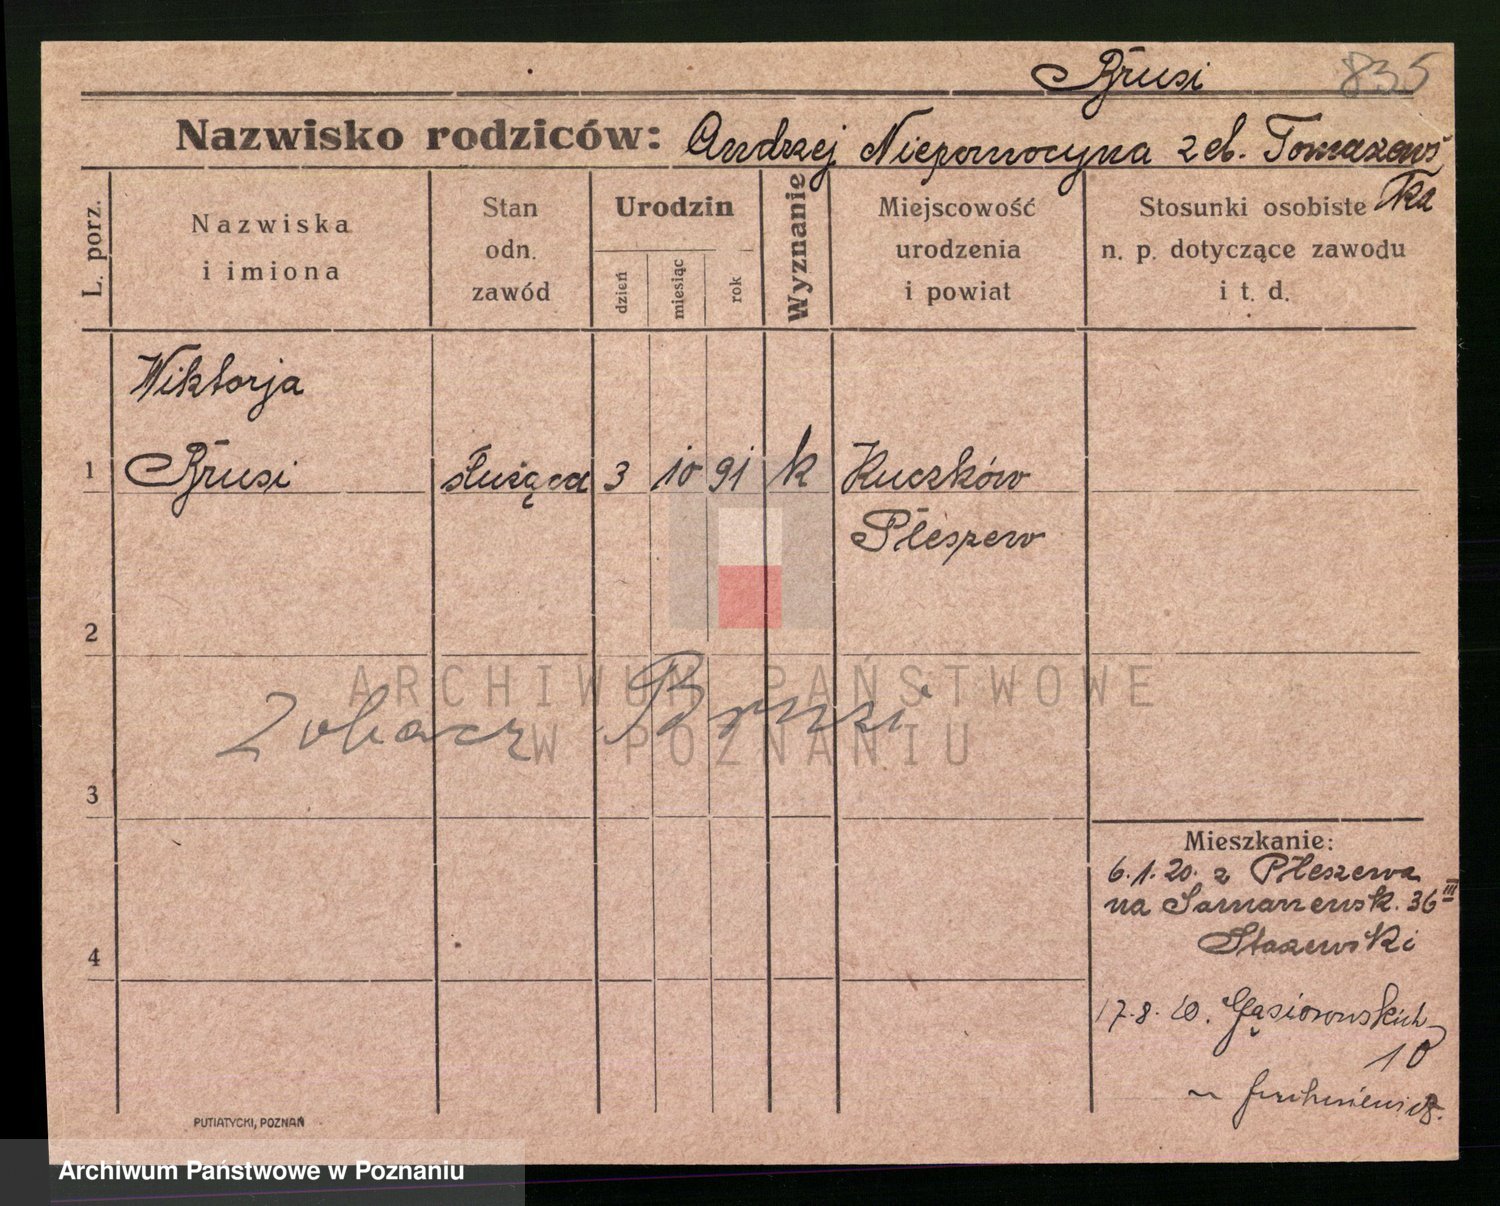 Brusi 835
Nazwisko rodziców: Andrzej Niepomocyna z eb. Tomaszews
ka
L. porz.
Nazwiska
i imiona
Stan
odn.
zawód
Urodzin
dzień
miesiąc
rok
Wyznanie
Miejscowość
urodzenia
i powiat
Stosunki osobiste
n. p. dotyczące zawodu
i t. d.
Wiktorja
1 Brusi służąca 3 10 91 k Kuczków
Pleszew
2
ARCHIWUM PAŃSTWOWE
W POZNANIU
Zobacz Bruzi
3
4
Mieszkanie:
6.1.20. z Pleszewa
na 36 III
Staszewski
17.8.20. Gąsiorowskich
10
PUTIATYCKI, POZNAŃ
Archiwum Państwowe w Poznaniu